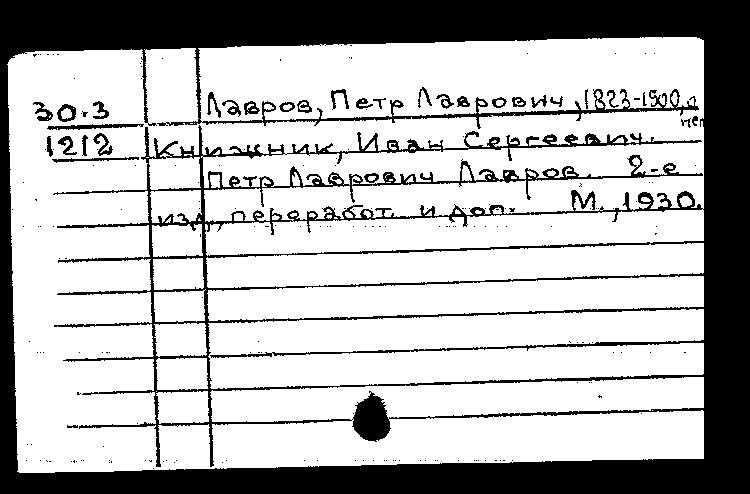 30.3 Лавров, Петр Лаврович, 1823-1900, о
нем
1212 Книжник, Иван Сергеевич.
Петр Лаврович Лавров. 2-е
изд., переработ. и доп. М., 1930.